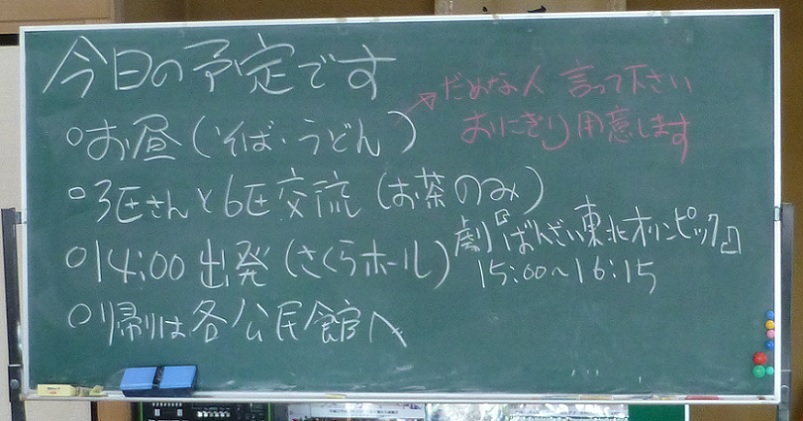 今日の予定です
○お昼(そば・うどん)
だめな人 言って下さい
おにぎり用意します
○3区さんと6区交流(お茶のみ)
○14:00 出発(さくらホール)
劇『ばんざい東北オリンピック』
15:00〜16:15
○帰りは各公民館へ